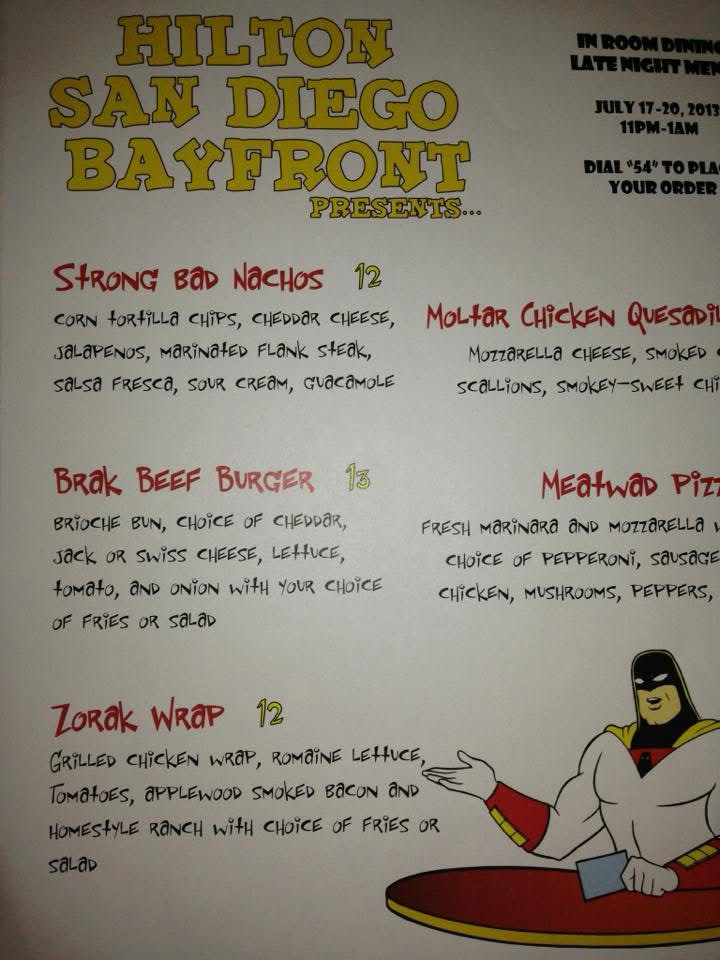 HILTON
SAN DIEGO
BAYFRONT
PRESENTS...
IN ROOM DINING
LATE NIGHT
JULY 17-20, 2013
11PM-1AM
DIAL "54" TO
YOUR ORDER
Strong Bad Nachos 12
corn tortilla chips, cheddar cheese,
jalapenos, marinated flank steak,
salsa fresca, sour cream, guacamole
Moltar Chicken
Mozzarella cheese, smoked
scallions, smokey-sweet
Brak Beef Burger 13
Brioche bun, choice of cheddar,
jack or swiss cheese, lettuce,
tomato, and onion with your choice
of fries or salad
Meatwad
Fresh marinara and mozzarella
choice of pepperoni, sausage
chicken, mushrooms, peppers,
Zorak Wrap 12
Grilled chicken wrap, romaine lettuce,
Tomatoes, applewood smoked bacon and
homestyle ranch with choice of fries or
salad